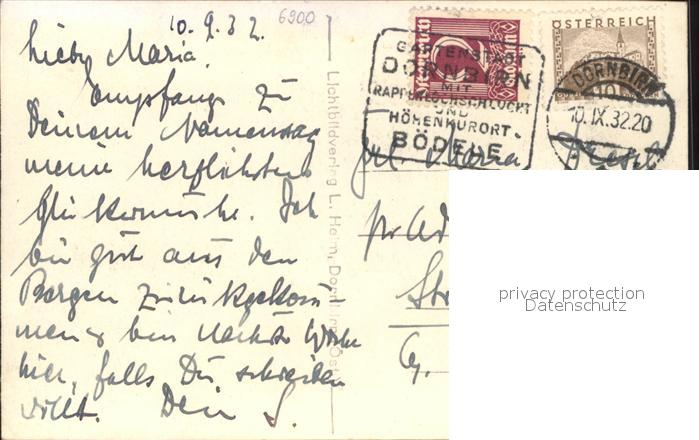 10.9.32.
6900
Liebe Maria,
empfange zu
Deinem Namenstag
meine herzlichsten
Glückwünsche. Ich
bin gut aus den
Bergen zurückgekom-
men & bin nächste Woche
hier, falls Du schreiben
willst. Dein
Lichtbildverlag L. Heim, Dornbirn, Öst
ÖSTERREICH
10
GARTENSTADT
DORNBIRN
MIT
RAPPENLOCHSCHLUCHT
UND
HÖHENKURORT
BÖDELE
DORNBIRN
10.IX.32.20
Frl. Maria
pr Ad
privacy protection
Datenschutz